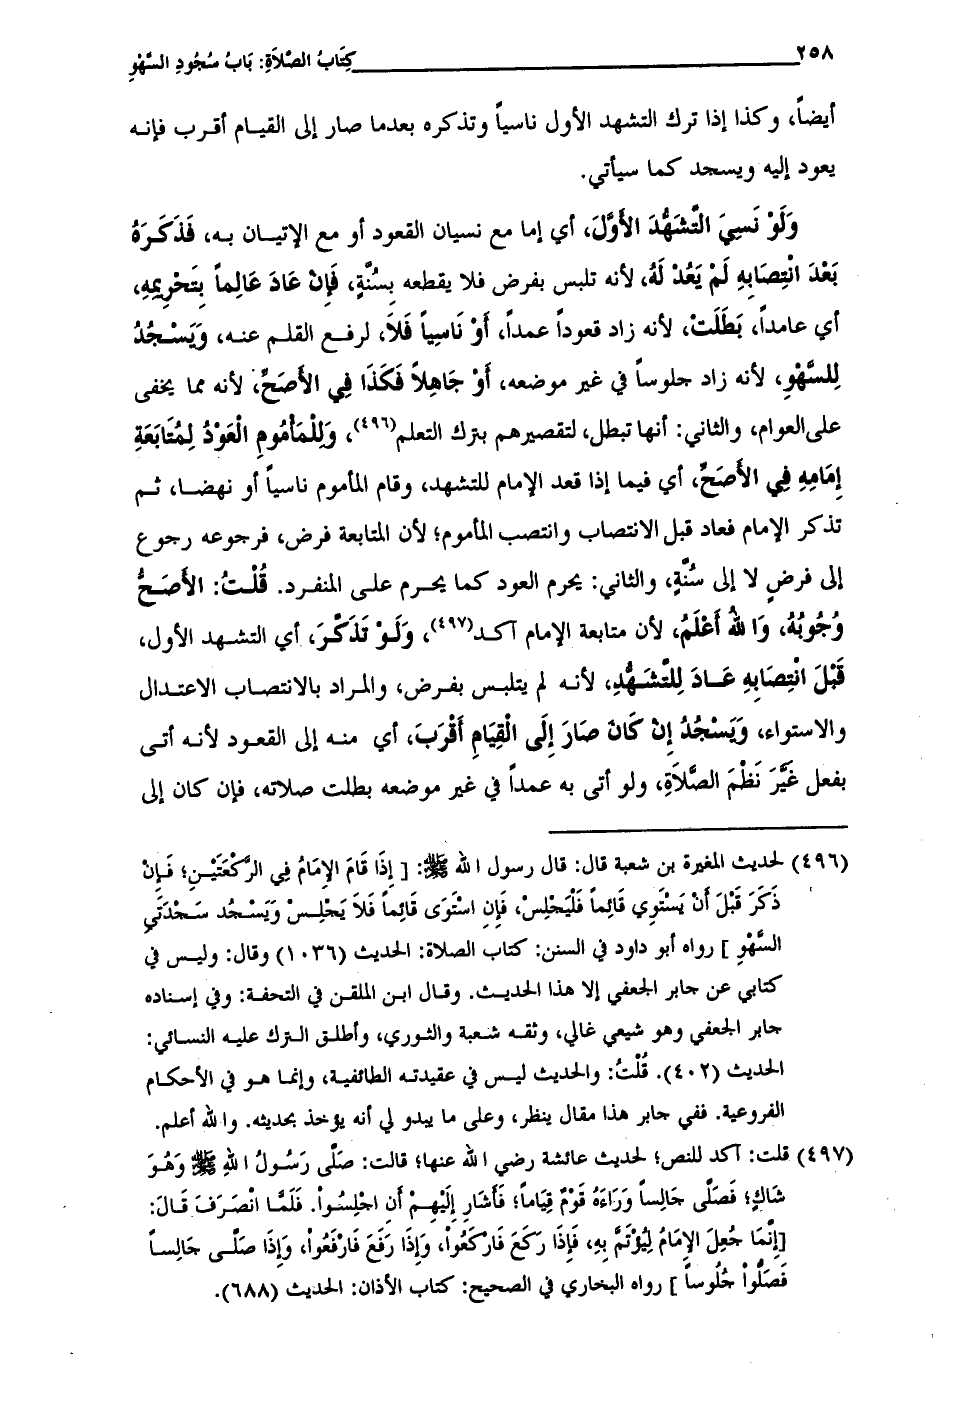 ٢٥٨ كِتَابُ الصَّلاَةِ: بَابُ سُجُودِ السَّهْوِ
أيضاً، وكذا إذا ترك التشهد الأول ناسياً وتذكره بعدما صار إلى القيام أقرب فإنه
يعود إليه ويسجد كما سيأتي.
وَلَوْ نَسِيَ التَّشَهُّدَ الأَوَّلَ، أي إما مع نسيان القعود أو مع الإتيان به، فَذَكَرَهُ
بَعْدَ انْتِصَابِهِ لَمْ يَعُدْ لَهُ، لأنه تلبس بفرض فلا يقطعه بِسُنَّةٍ، فَإِنْ عَادَ عَالِماً بِتَحْرِيْمِهِ،
أي عامداً، بَطَلَتْ، لأنه زاد قعوداً عمداً، أَوْ نَاسِياً فَلاَ، لرفع القلم عنه، وَيَسْجُدُ
لِلسَّهْوِ، لأنه زاد جلوساً في غير موضعه، أَوْ جَاهِلاً فَكَذَا فِي الأَصَحِّ، لأنه مما يخفى
على العوام، والثاني: أنها تبطل، لتقصيرهم بترك التعلم(٤٩٦)، وَلِلْمَأْمُومِ الْعَوْدُ لِمُتَابَعَةِ
إِمَامِهِ فِي الأَصَحِّ، أي فيما إذا قعد الإمام للتشهد، وقام المأموم ناسياً أو نهضا، ثم
تذكر الإمام فعاد قبل الانتصاب وانتصب المأموم؛ لأن المتابعة فرض، فرجوعه رجوع
إلى فرضٍ لا إلى سُنَّةٍ، والثاني: يحرم العود كما يحرم على المنفرد. قُلْتُ: الأَصَحُّ
وُجُوبُهُ، وَا للهُ أَعْلَمُ، لأن متابعة الإمام آكد(٤٩٧)، وَلَوْ تَذَكَّرَ، أي التشهد الأول،
قَبْلَ انْتِصَابِهِ عَادَ لِلتَّشَهُّدِ، لأنه لم يتلبس بفرض، والمراد بالانتصاب الاعتدال
والاستواء، وَيَسْجُدُ إِنْ كَانَ صَارَ إِلَى الْقِيَامِ أَقْرَبَ، أي منه إلى القعود لأنه أتى
بفعل غَيَّرَ نَظْمَ الصَّلاَةِ، ولو أتى به عمداً في غير موضعه بطلت صلاته، فإن كان إلى
(٤٩٦) لحديث المغيرة بن شعبة قال: قال رسول ا لله ﷺ: [ إِذَا قَامَ الإِمَامُ فِي الرَّكْعَتَيْنِ؛ فَإِنْ
ذَكَرَ قَبْلَ أَنْ يَسْتَوِي قَائِماً فَلْيَجْلِسْ، فَإِنِ اسْتَوَى قَائِماً فَلاَ يَجْلِسْ وَيَسْجُد سَجْدَتَي
السَّهْوِ ] رواه أبو داود في السنن: كتاب الصلاة: الحديث (١٠٣٦) وقال: وليس في
كتابي عن جابر الجعفي إلا هذا الحديث. وقال ابن الملقن في التحفة: وفي إسناده
جابر الجعفي وهو شيعي غالي، وثقه شعبة والثوري، وأطلق الترك عليه النسائي:
الحديث (٤٠٢). قُلْتُ: والحديث ليس في عقيدته الطائفية، وإنما هو في الأحكام
الفروعية. ففي جابر هذا مقال ينظر، وعلى ما يبدو لي أنه يؤخذ بحديثه. وا لله أعلم.
(٤٩٧) قلت: آكد للنص؛ لحديث عائشة رضي ا لله عنها؛ قالت: صَلَّى رَسُولُ ا للهِ ﷺ وَهُوَ
شَاكٍ؛ فَصَلَّى جَالِساً وَرَاءَهُ قَوْمٌ قِيَاماً؛ فَأَشَارِ إِلَيْهِمْ أَنِ اجْلِسُواْ. فَلَمَّا انْصَرَفَ قَالَ:
[إِنَّمَا جُعِلَ الإِمَامُ لِيُؤْتَمَّ بِهِ، فَإِذَا رَكَعَ فَارْكَعُواْ، وَإِذَا رَفَعَ فَارْفَعُواْ، وَإِذَا صَلَّى جَالِساً
فَصَلُّواْ جُلُوساً ] رواه البخاري في الصحيح: كتاب الأذان: الحديث (٦٨٨).